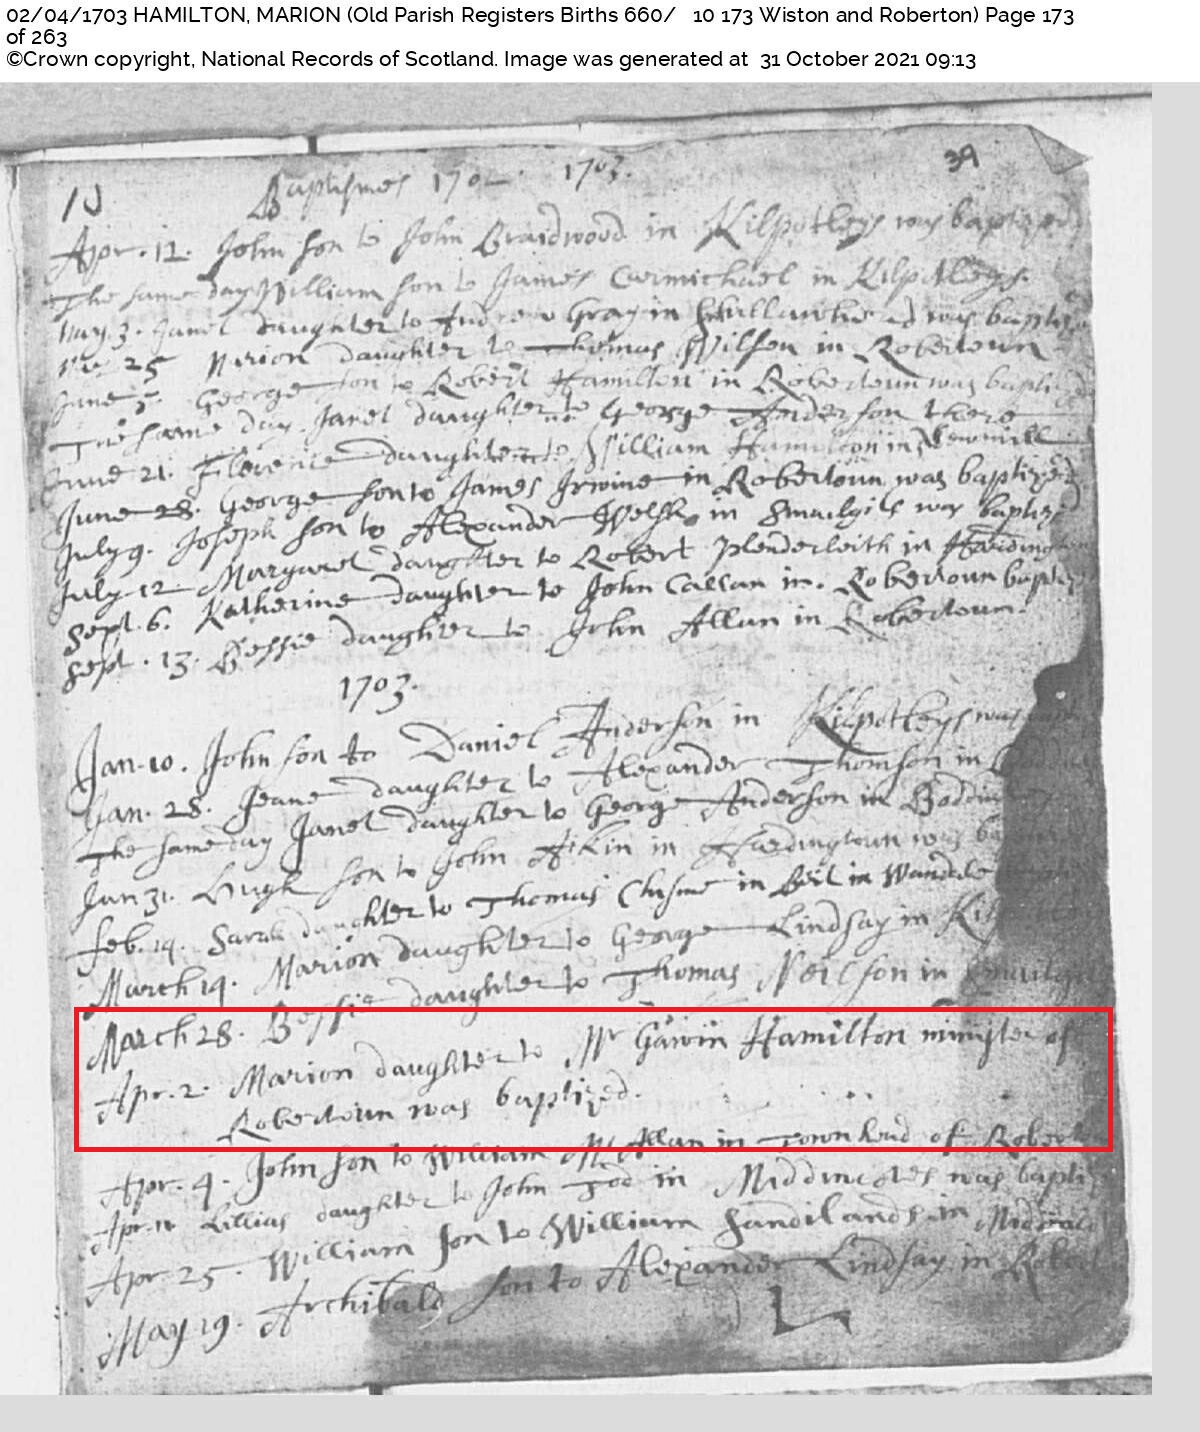 02/04/1703 HAMILTON, MARION (Old Parish Registers Births 660/ 10 173 Wiston and Roberton) Page 173
of 263
©Crown copyright, National Records of Scotland. Image was generated at 31 October 2021 09:13
39
10 Baptismes 1702. 1703.
Apr. 12. John son to John Braidwood in Kilpotleys was baptized
The same day William son to James Carmichael in Kilpotleys.
May. 3. Janet daughter to Andrew Gray in was baptize
25 Marion daughter to Thomas Wilson in Robertoun
June 5. George son to Robert Hamilton in Robertoun was baptized
The same day. Janet daughter to George Anderson there
June 21. Florence daughter to William Hamilton in Newmill
June 28. George son to James Irwine in Robertoun was baptized
July 9. Joseph son to Alexander Welsh in Smailgils was baptiz
July 12 Margaret daughter to Robert Plenderleith in
Sept. 6. Katherine daughter to John Callan in. Robertoun baptiz
Sept. 13. Bessie daughter to John Allan in Robertoun.
1703.
Jan. 10. John son to Daniel Anderson in Kilpotleys was
Jan. 28. Jeane daughter to Alexander Thomson in
The same day Janet daughter to George Anderson in
Jan 31. Hugh son to John Aikin in was
Feb. 14. Sarah daughter to Thomas in in Wandele
March 14. Marion daughter to George Lindsay in
March 28. Bessie daughter to Thomas Neilson in
Apr. 2. Marion daughter to Mr Gawin Hamilton minister of
Robertoun was baptized.
Apr. 4. John son to William McAllan in Townhead of Robert
Apr. 11 Lillias daughter to John Tod in was bapti
Apr. 25. William son to William Sandilands in
May 19. Archibald son to Alexander Lindsay in